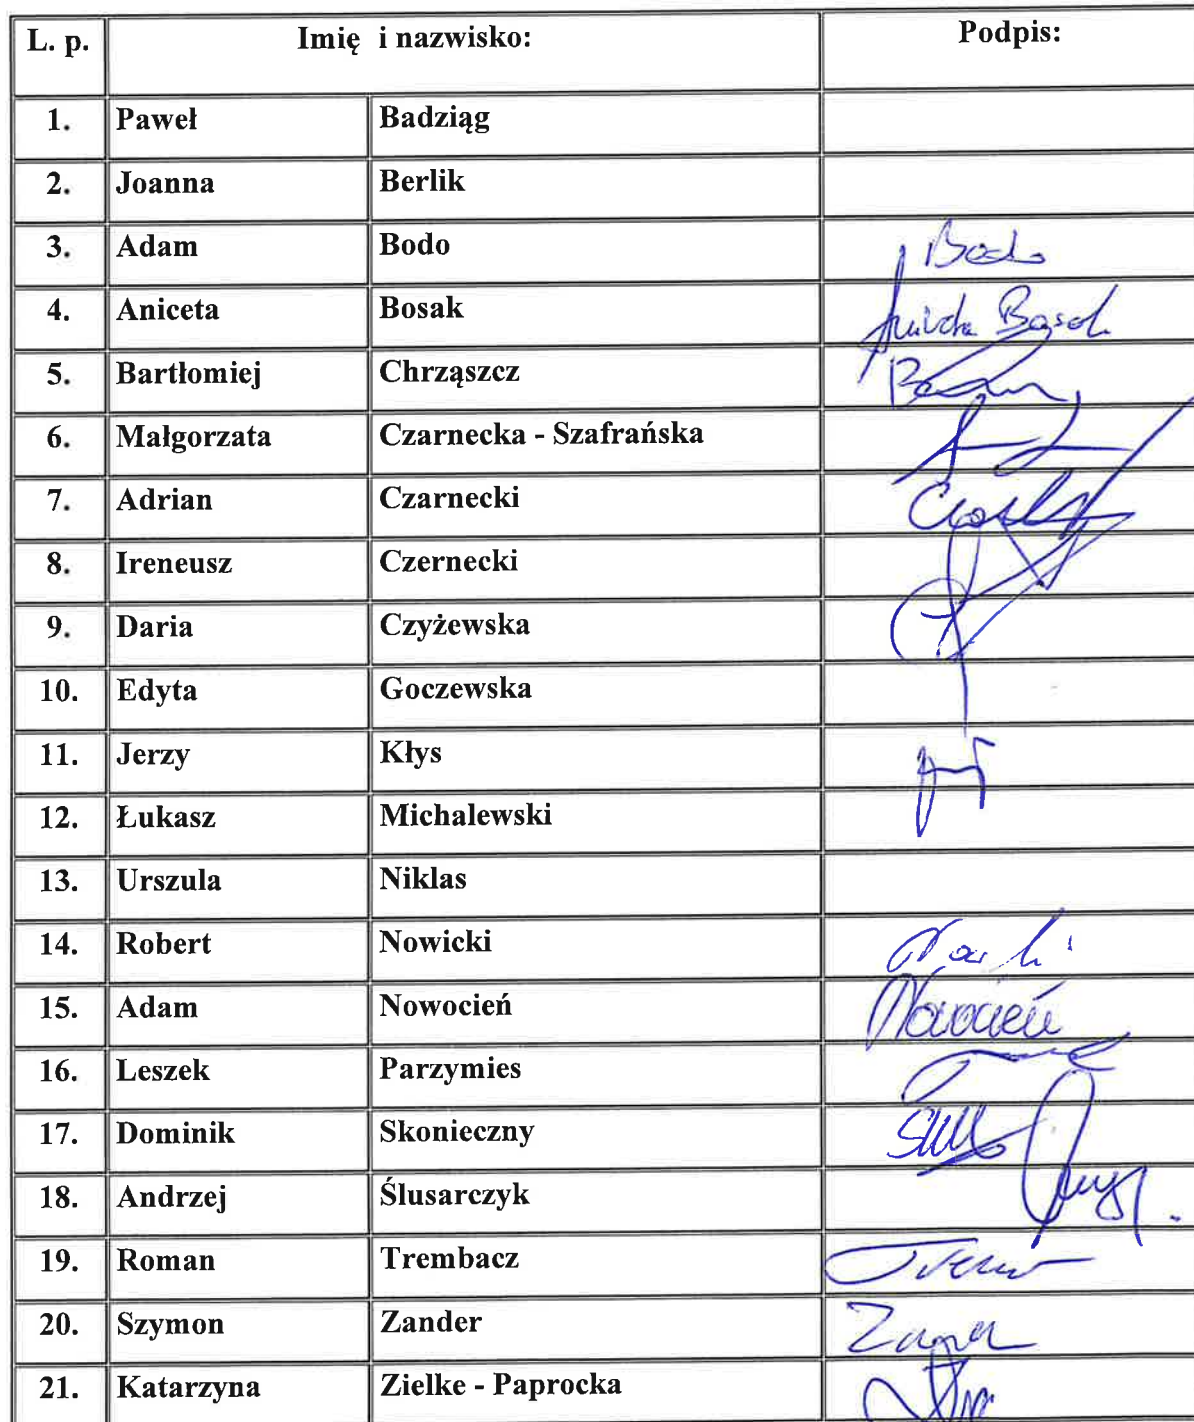 L. p. Imię i nazwisko: Podpis:
1. Paweł Badziąg
2. Joanna Berlik
3. Adam Bodo Bodo
4. Aniceta Bosak
5. Bartłomiej Chrząszcz
6. Małgorzata Czarnecka - Szafrańska
7. Adrian Czarnecki
8. Ireneusz Czernecki
9. Daria Czyżewska
10. Edyta Goczewska
11. Jerzy Kłys
12. Łukasz Michalewski
13. Urszula Niklas
14. Robert Nowicki
15. Adam Nowocień Nowocień
16. Leszek Parzymies
17. Dominik Skonieczny
18. Andrzej Ślusarczyk
19. Roman Trembacz
20. Szymon Zander
21. Katarzyna Zielke - Paprocka